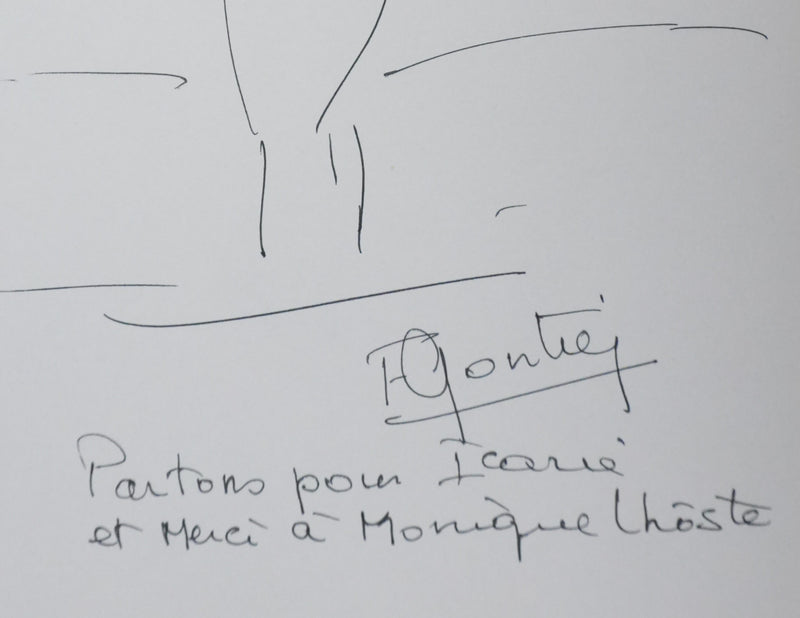 Partons pour Icarie
et Merci à Monique Lhoste